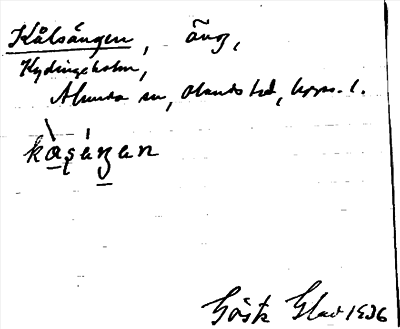 Kålsängen, äng,
Kydingeholm,
Almunge sn, Olands hd, Upps. l.
kåsäŋan
Gösta Glav 1936